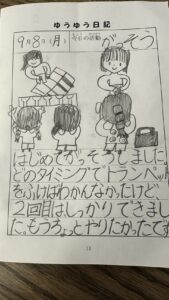 ゆうゆう日記
9月8日(月)
今日の活動
がっそう
はじめてがっそうをしました。
どのタイミングでトランペット
をふけばわかんなかったけど、
2回目はしっかりできまし
た。もうちょっとやりたかったです